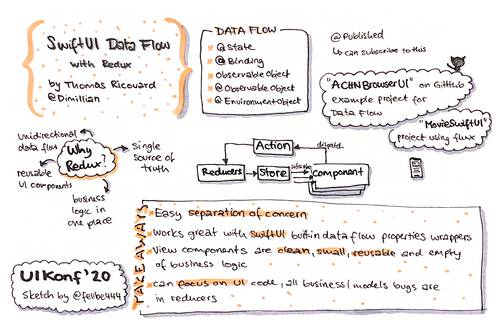 SwiftUI Data Flow
with Redux
by Thomas Ricouard
@Dimillian
DATA FLOW
@State
@Binding
ObservableObject
@ObservableObject
@EnvironmentObject
@Published
↳ can subscribe to this
"ACHNBrowserUI" on GitHub
example project for
Data Flow
"MovieSwiftUI"
project using flux
Why
Redux?
Unidirectional
data flow
reusable
UI components
business
logic in
one place
Single
source of
truth
Action
dispatch
Reducers
Store
subscribe
component
TAKEAWAYS
Easy separation of concern
works great with SwiftUI built-in data flow properties wrappers
View components are clean, small, reusable and empty
of business logic
can focus on UI code, all business/models bugs are
in reducers
UIKonf'20
Sketch by @felibe444